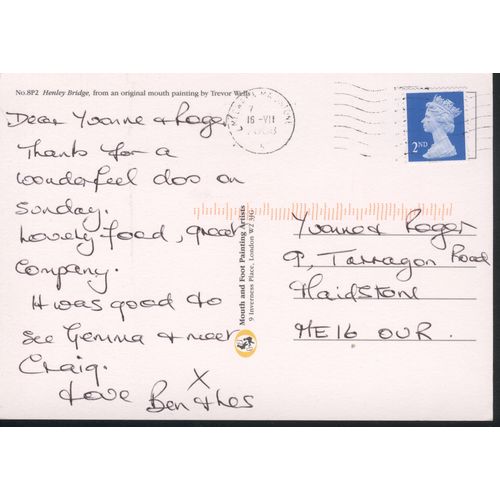 No.8P2 Henley Bridge, from an original mouth painting by Trevor Wells
Dear Yvonne & Roger
Thanks for a
wonderfeel doo on
Sunday.
Lovely food, great
Company.
It was good to
see Gemma & meet
Craig.
X
Love Ben & Les
Mouth and Foot Painting Artists
9 Inverness Place, London W2 3JG
16-VII
2ND
Yvonne & Roger
9, Tarragon Road
Maidstone
ME16 OUR.